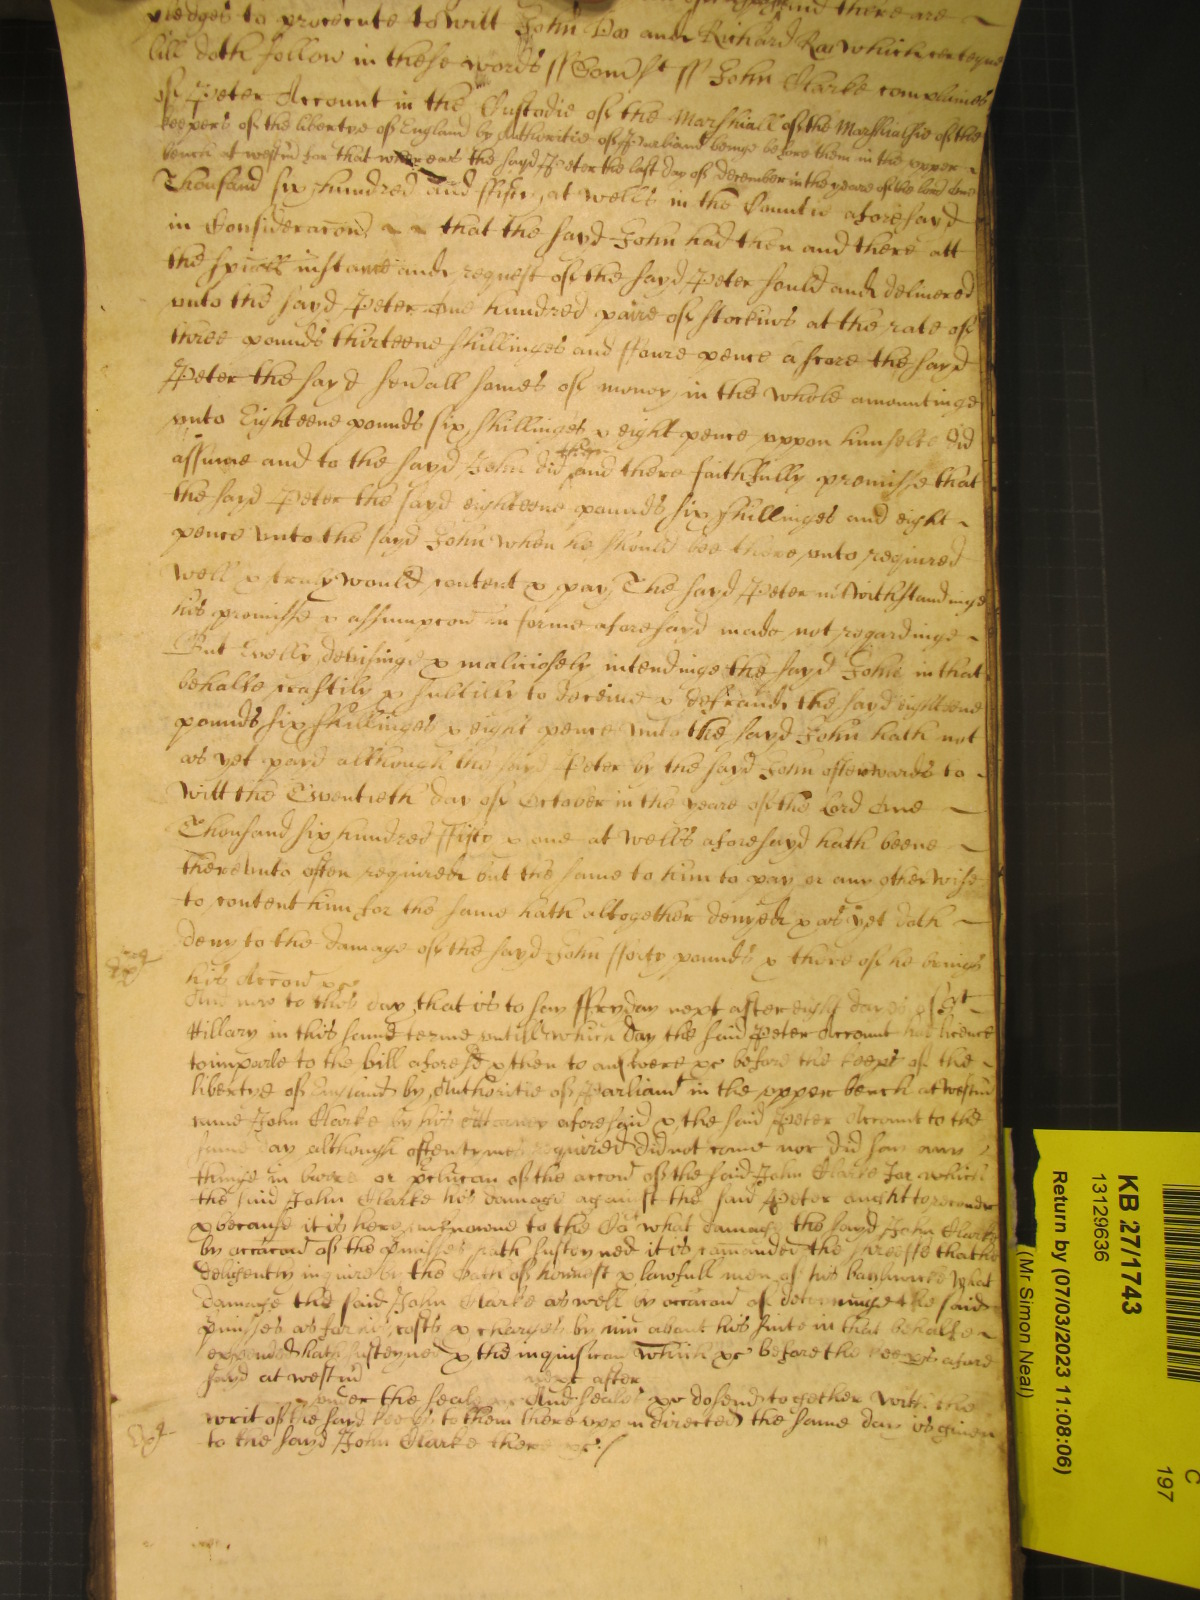 pledges to prosecute to witt John Doo and Richard Roo which certayne
bill doth follow in these words ss Somst ss John Clarke complaines
of Peter Account in the Custodie of the Marshiall of the Marshialsie of the
keepers of the libertye of England by Authoritie of Parliamt beinge before them in the upper
bench at westmr for that whereas the sayd Peter the last day of december in the yeare of the lord one
Thousand six hundred and ffifty at wells in the Countie aforesayd
in Consideracon that the sayd John had then and there att
the spiall instance and request of the sayd Peter sould and delivered
unto the sayd Peter one hundred paire of stockins at the rate of
three pounds thirteene shillinges and ffoure pence a score the sayd
Peter the sayd sevall somes of money in the whole amountinge
unto Eighteene pounds six shillinges & eight pence uppon himselfe did
assume and to the sayd John did then and there faithfully promisse that
the sayd Peter the sayd eighteene pounds six shillinges and eight
pence unto the sayd John when he should bee thereunto required
well & truly would content & pay The sayd Peter notwithstandinge
his promisse & assumpcon in forme aforesayd made not regardinge
But Evelly devisinge & maliciosely intendinge the sayd John in that
behalfe craftily & subtilly to deceive & defraude the sayd eighteene
pounds six shillinges & eight pence unto the sayd John hath not
as yet payd although the sayd Peter by the sayd John afterwards to
witt the Twentieth day of October in the yeare of the lord one
Thousand six hundred ffifty & one at wells aforesayd hath beene
thereunto often required but the same to him to pay or any otherwise
to content him for the same hath altogether denyed & as yet doth
deny to the damage of the sayd John fforty pounds & thereof he brings
his Accon &c
And now to this day that is to say ffryday next after eight dayes of St
Hillary in this same terme untill which day the said Peter Account had licence
to imparle to the bill aforesd & then to answere &c before the keeps of the
libertye of England by Authoritie of Parliamt in the upper bench at westmr
came John Clarke by his Attorney aforesaid & the said Peter Account to the
same day although oftentymes required did not come nor did say any
thinge in barre or pclusion of the accon of the said John Clarke for which
the said John Clarke his damage against the said Peter ought to recover
& because it is here unknowne to the Co what damage the sayd John Clarke
by occacon of the pmisses hath susteyned it is comanded the shreeffe that he
deligently inquire by the Oath of honnest & lawfull men of his baylywicke what
damage the said John Clarke as well by occacon of determinige the said
pmisses as for his costs & charges by him about his suite in that behalfe
expended hath susteyned & the inquisicon which &c before the keeps afore
sayd at westmr next after
under the seale &c And seales &c do send together with the
writ of the sayd keeps to them thereuppon directed the same day is given
to the sayd John Clarke there &c
KB 27/1743
13129636
Return by (07/03/2023 11:08:06)
(Mr Simon Neal)
C
197